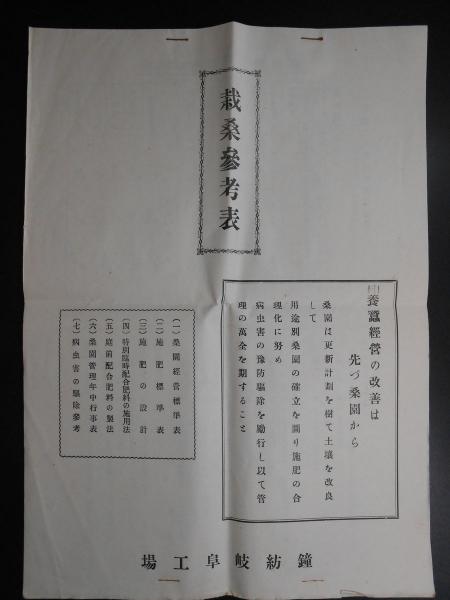 栽桑參考表
養蠶經營の改善は
先づ桑園から
桑園は更新計劃を樹て土壤を改良
して
用途別桑園の確立を圖り施肥の合
理化に努め
病虫害の豫防驅除を勵行し以て管
理の萬全を期すること
(一)桑園經營標準表
(二)施肥標準表
(三)施肥の設計
(四)特別臨時配合肥料の施用法
(五)庭前配合肥料の製法
(六)桑園管理年中行事表
(七)病虫害の驅除參考
場工阜岐紡鐘